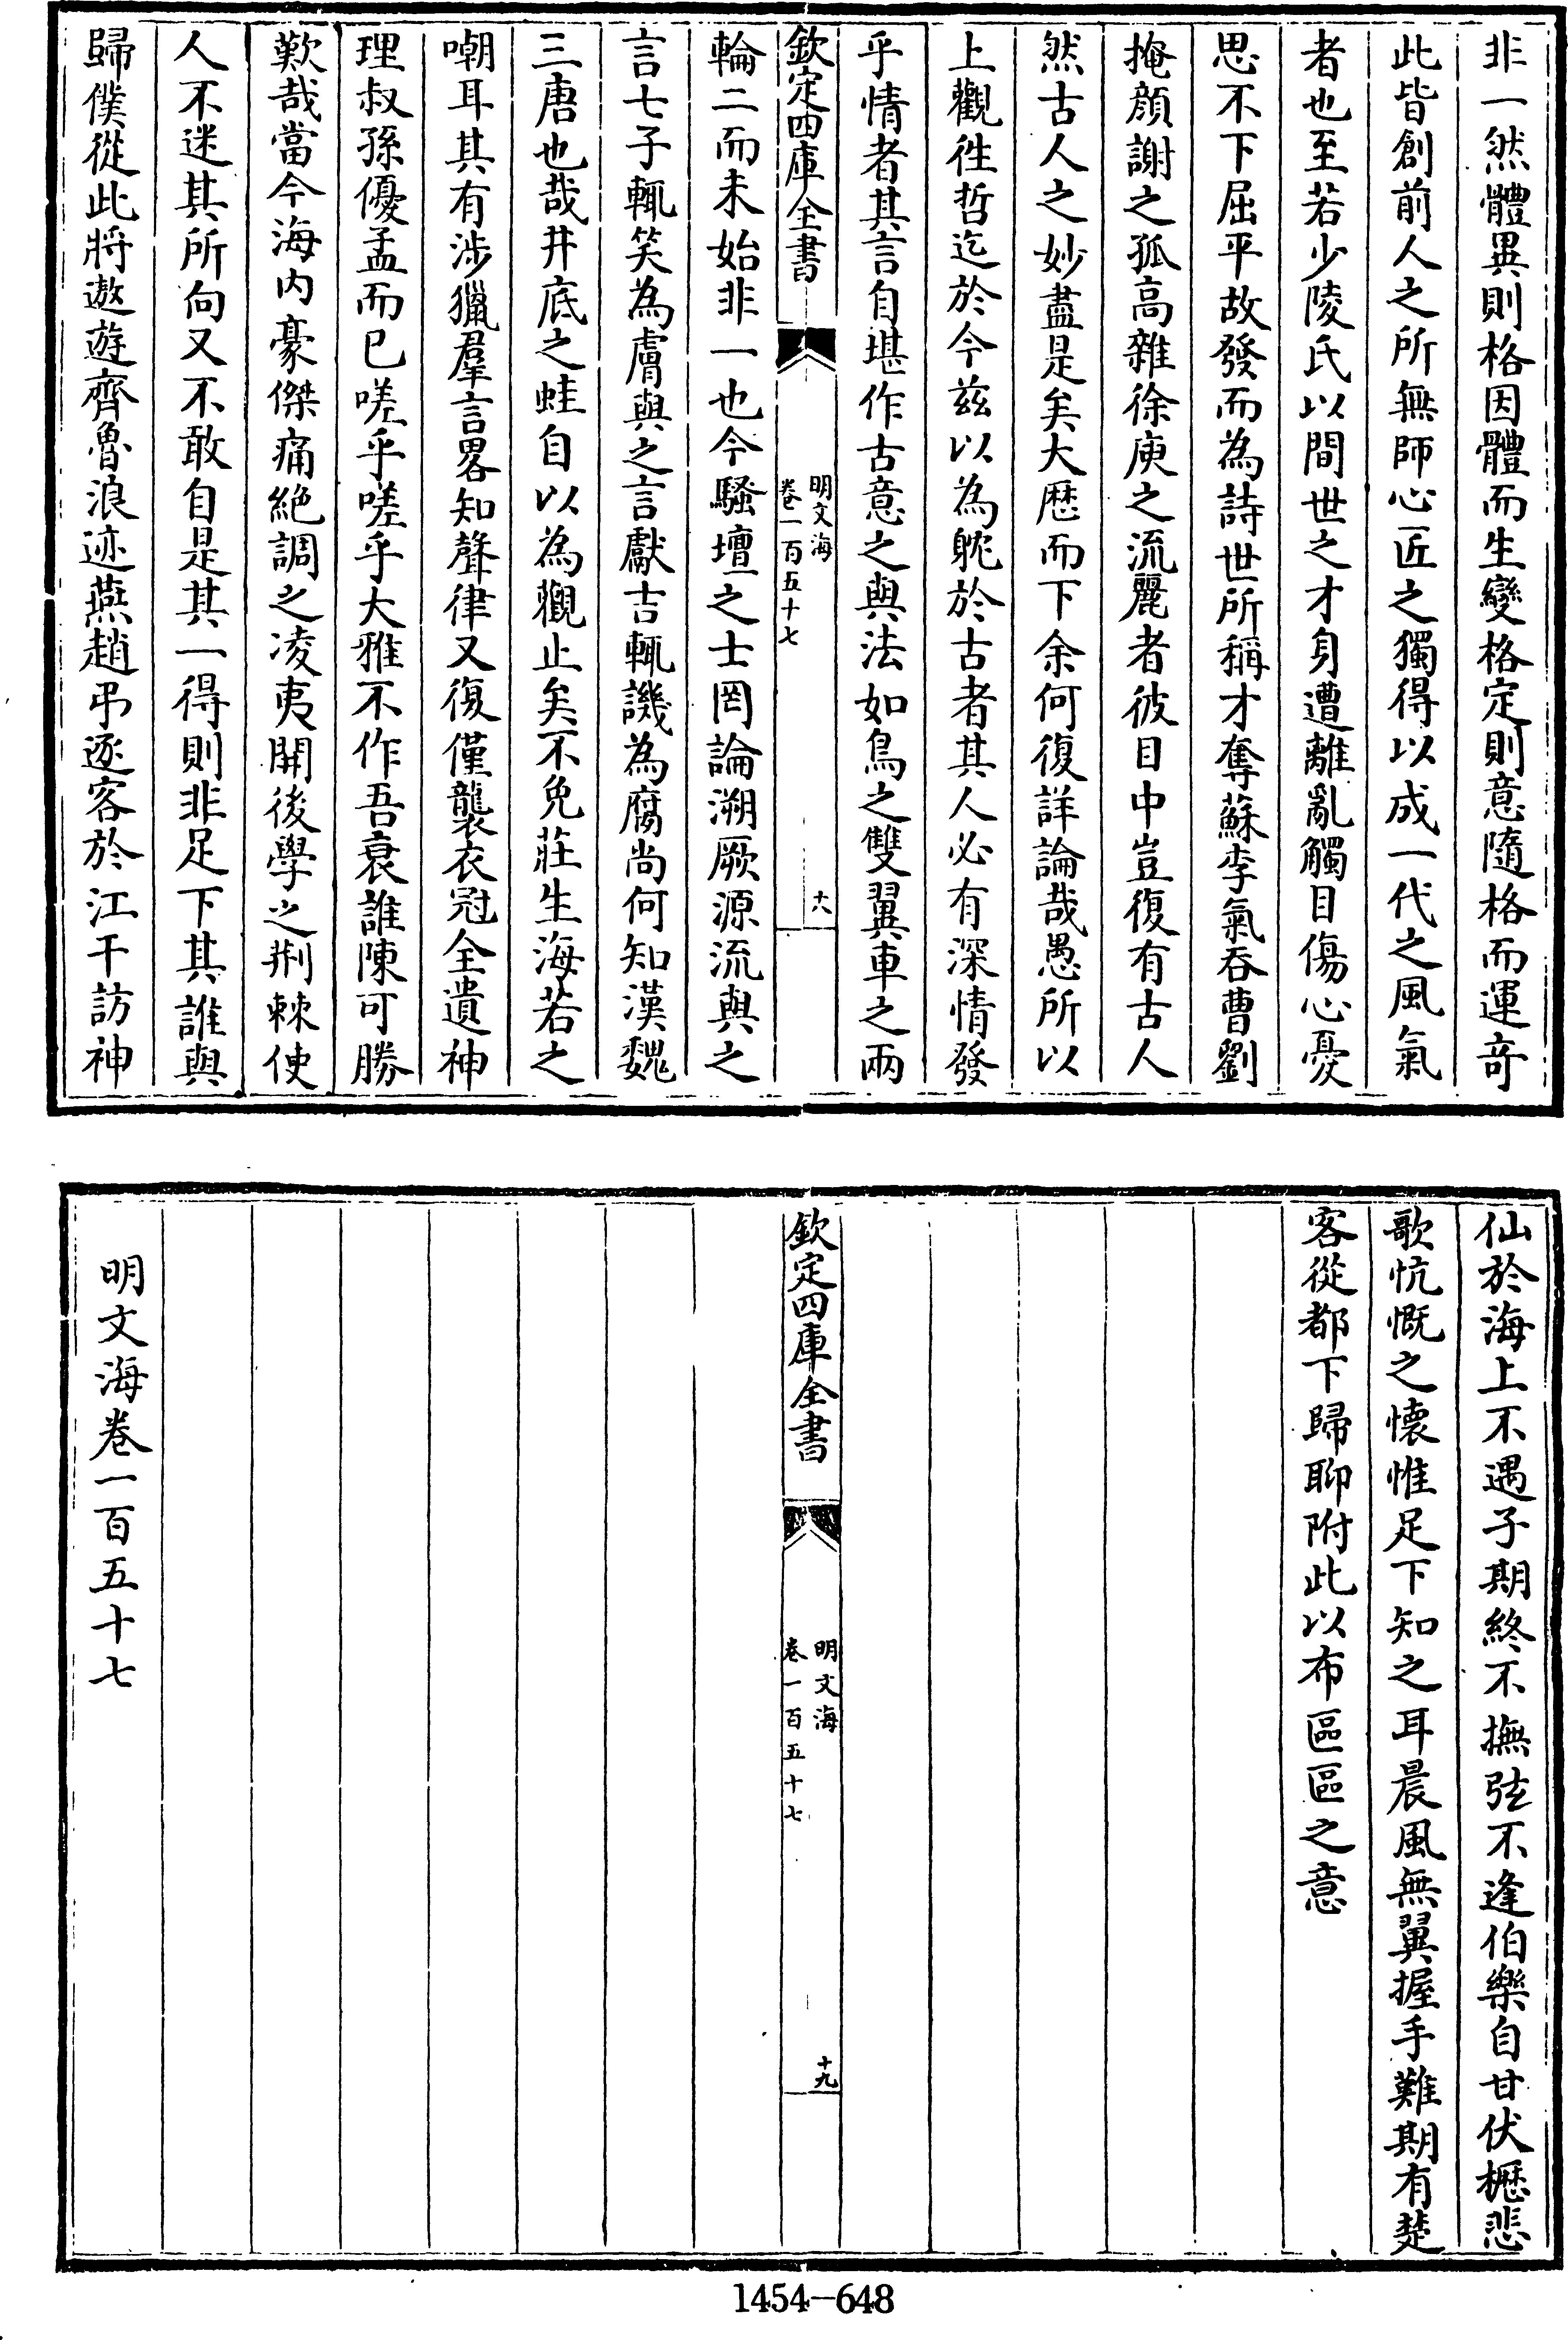 非一然體異則格因體而生變格定則意隨格而運竒
此皆創前人之所無師心匠之獨得以成一代之風氣
者也至若少陵氏以間世之才身遭離亂觸目傷心憂
思不下屈平故發而為詩世所稱才奪蘇李氣吞曹劉
掩顔謝之孤高雜徐庾之流麗者彼目中豈復有古人
然古人之妙盡是矣大歴而下余何復詳論哉愚所以
上觀徃哲迄於今兹以為軶於古者其人必有深情發
乎情者其言自堪作古意之與法如鳥之雙翼車之兩
欽定四庫全書
明文海
卷一百五十七
十八
輪二而未始非一也今騷壇之士罔論溯厥源流與之
言七子輒笑為膚與之言獻吉輒譏為腐尚何知漢魏
三唐也哉井底之蛙自以為觀止矣不免莊生海若之
嘲耳其有涉獵羣言畧知聲律又復僅襲衣冠全遺神
理叔孫優孟而已嗟乎嗟乎大雅不作吾衰誰陳可勝
歎哉當今海内豪傑痛絶調之凌夷開後學之荆棘使
人不迷其所向又不敢自是其一得則非足下其誰與
歸僕從此將遨遊齊魯浪迹燕趙弔逐客於江干訪神
仙於海上不遇子期終不撫弦不逢伯樂自甘伏櫪悲
歌忼慨之懐惟足下知之耳晨風無翼握手難期有楚
客從都下歸聊附此以布區區之意
欽定四庫全書
明文海
卷一百五十七
十九
明文海卷一百五十七
1454-648